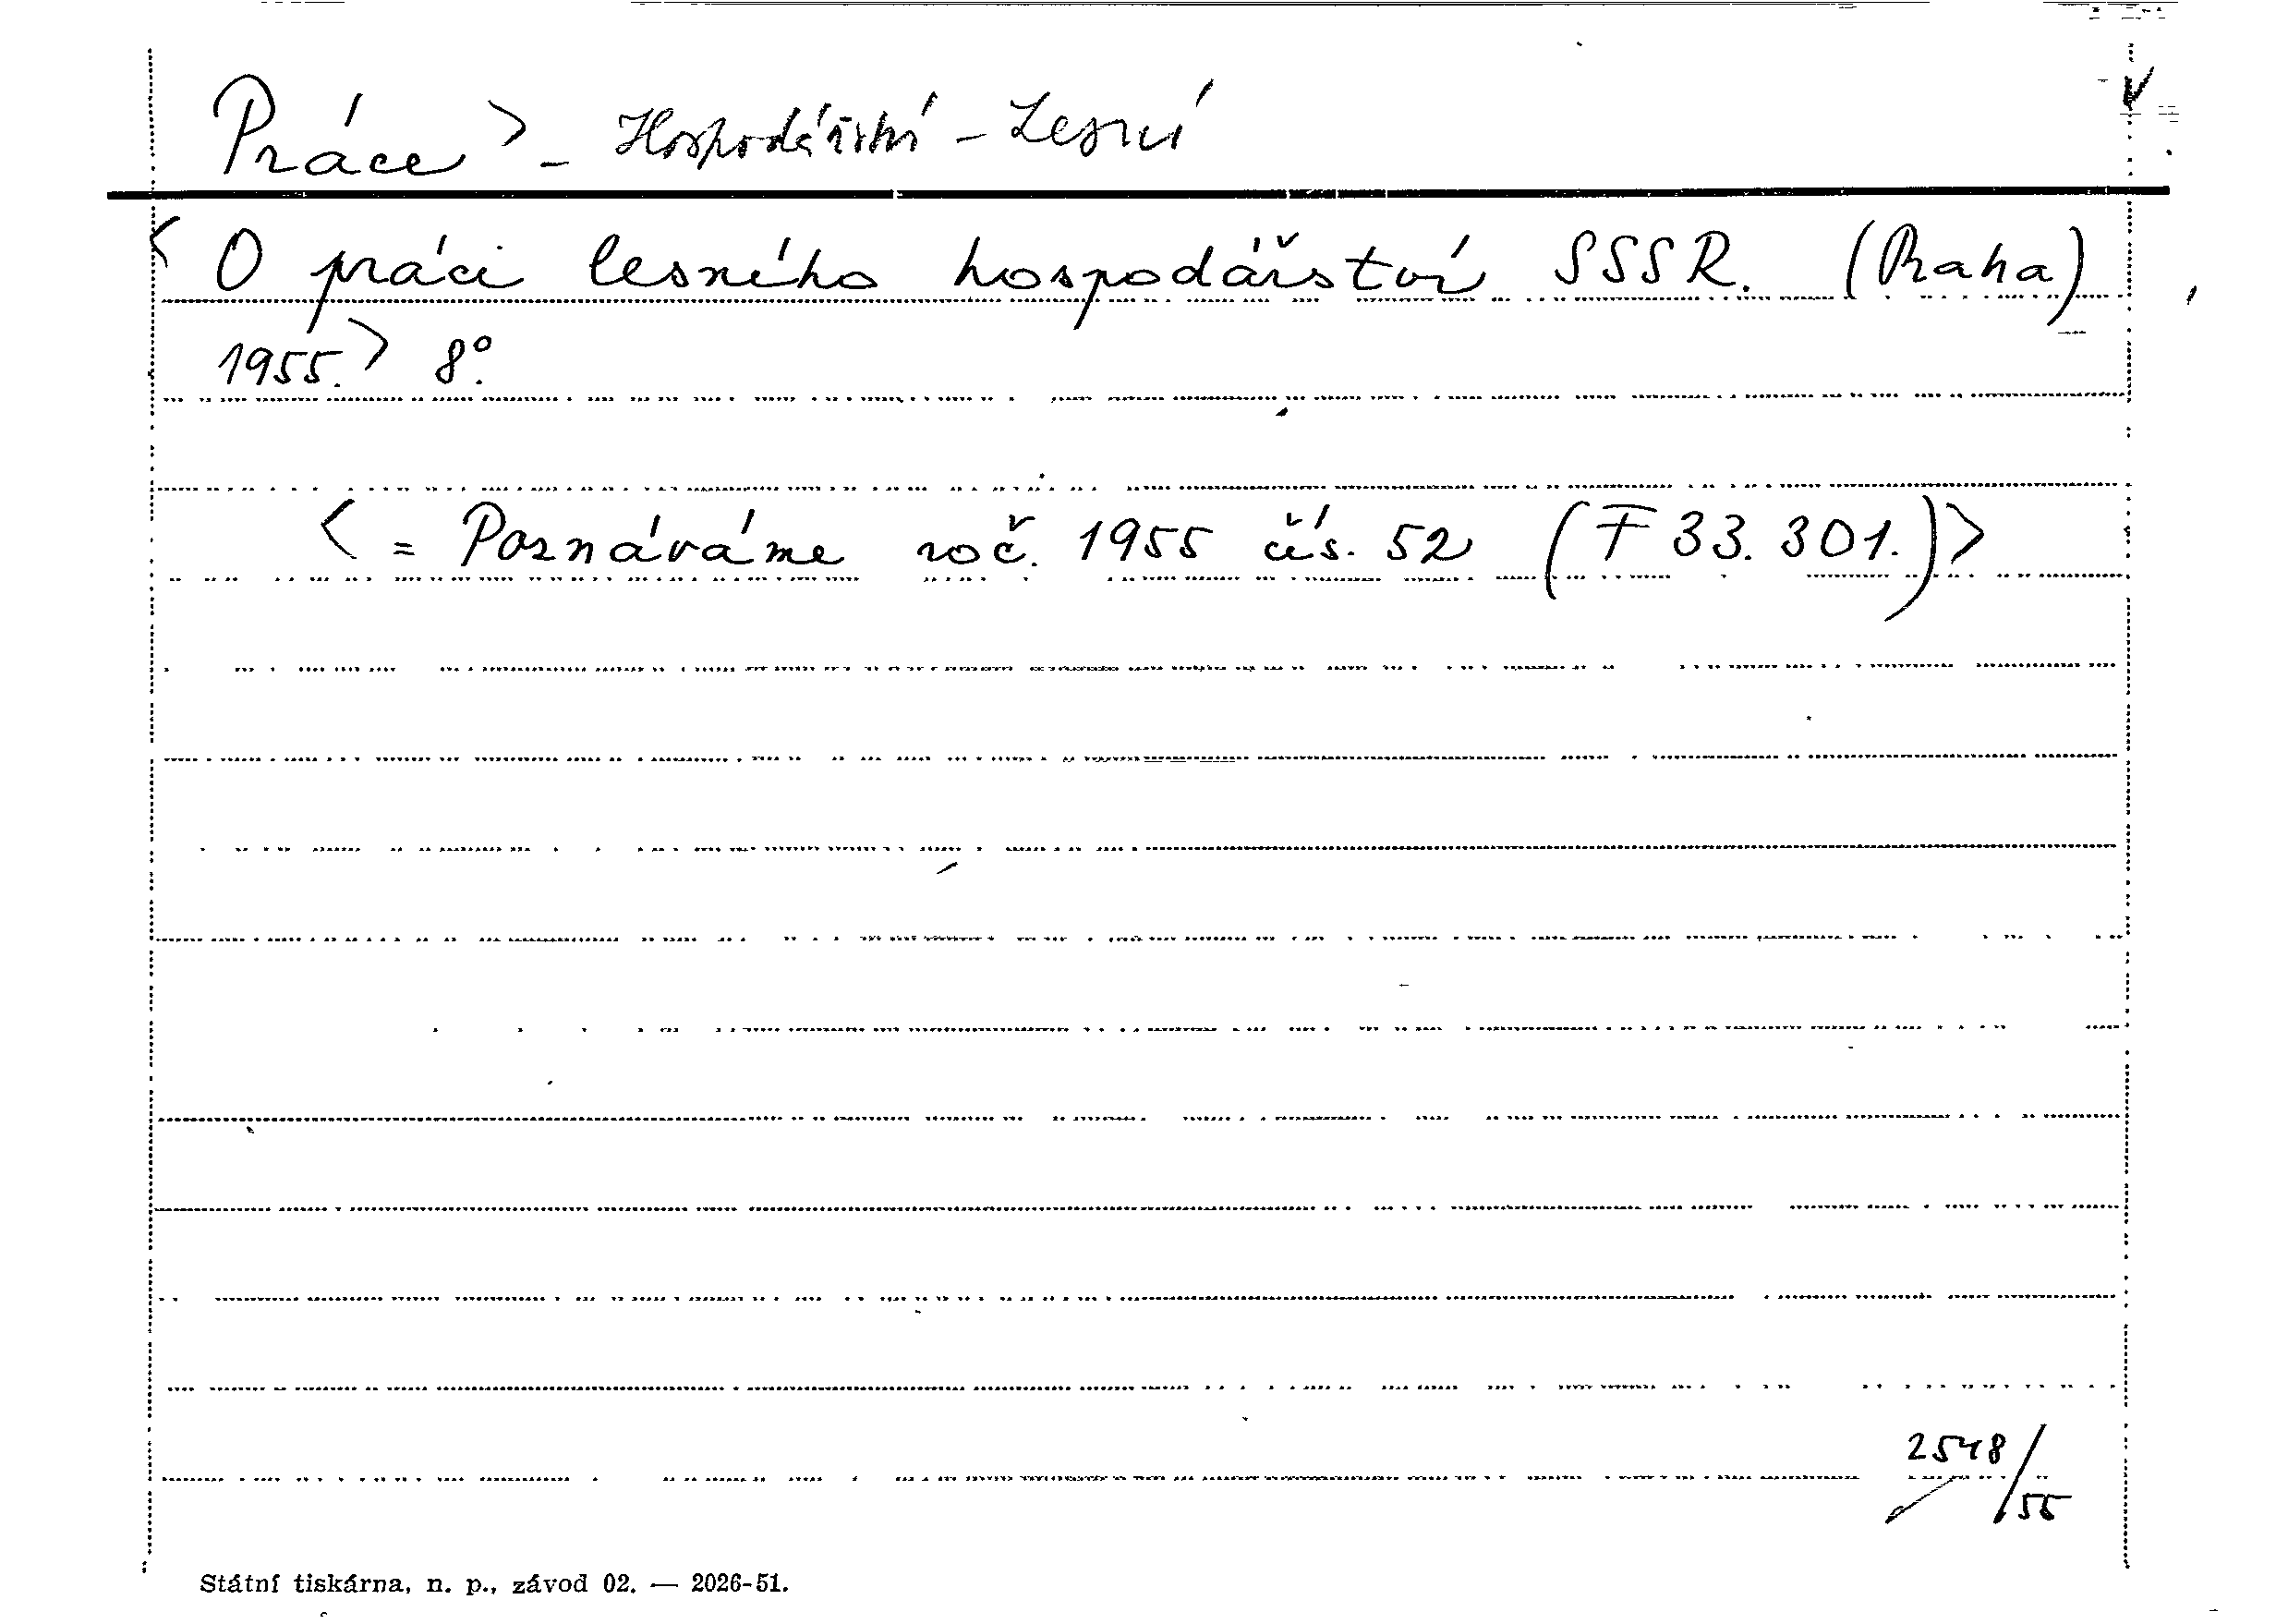 Práce > - Hospodářství - Lesní
< O práci lesného hospodářství SSSR. (Praha)
1955.> 8°.
< = Poznáváme roč. 1955 čís. 52 (F 33.301.)>
2548/55
Státní tiskárna, n. p., závod 02. — 2026-51.